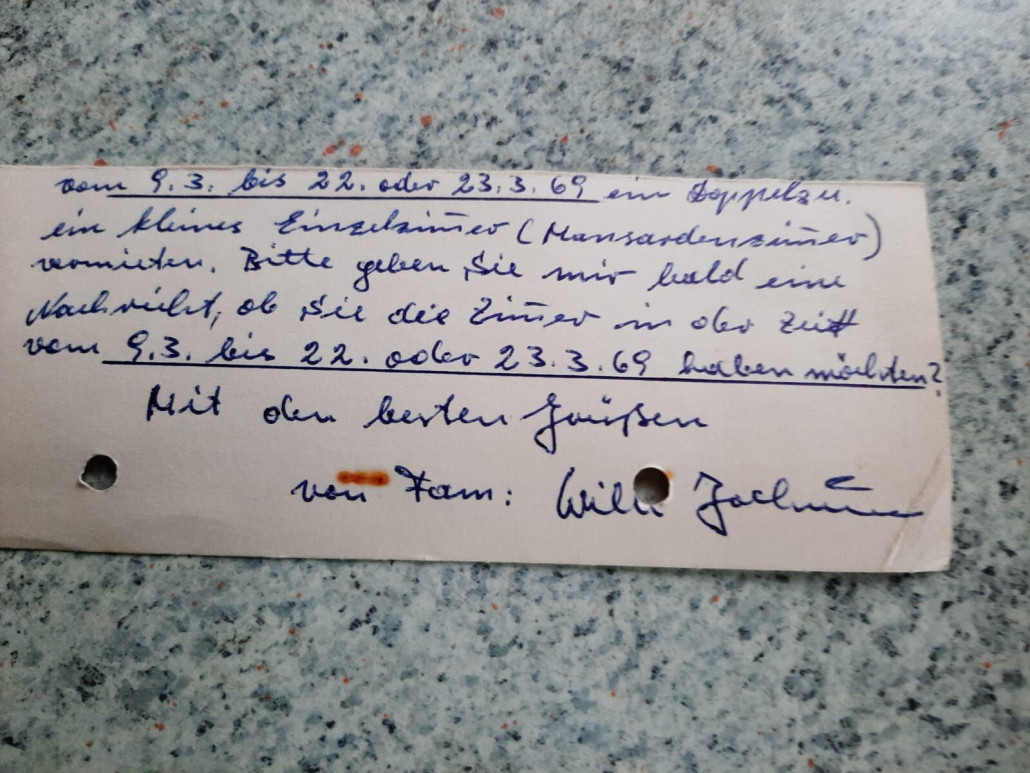 vom 9.3. bis 22. oder 23.3.69 ein Doppelzu.
ein kleines Einzelzim̄er (Mansardenzim̄er)
vermieten. Bitte geben Sie mir bald eine
Nachricht, ob Sie die Zim̄er in der Zeit
vom 9.3. bis 22. oder 23.3.69 haben möchten?
Mit den besten Grüßen
von Fam: Willi